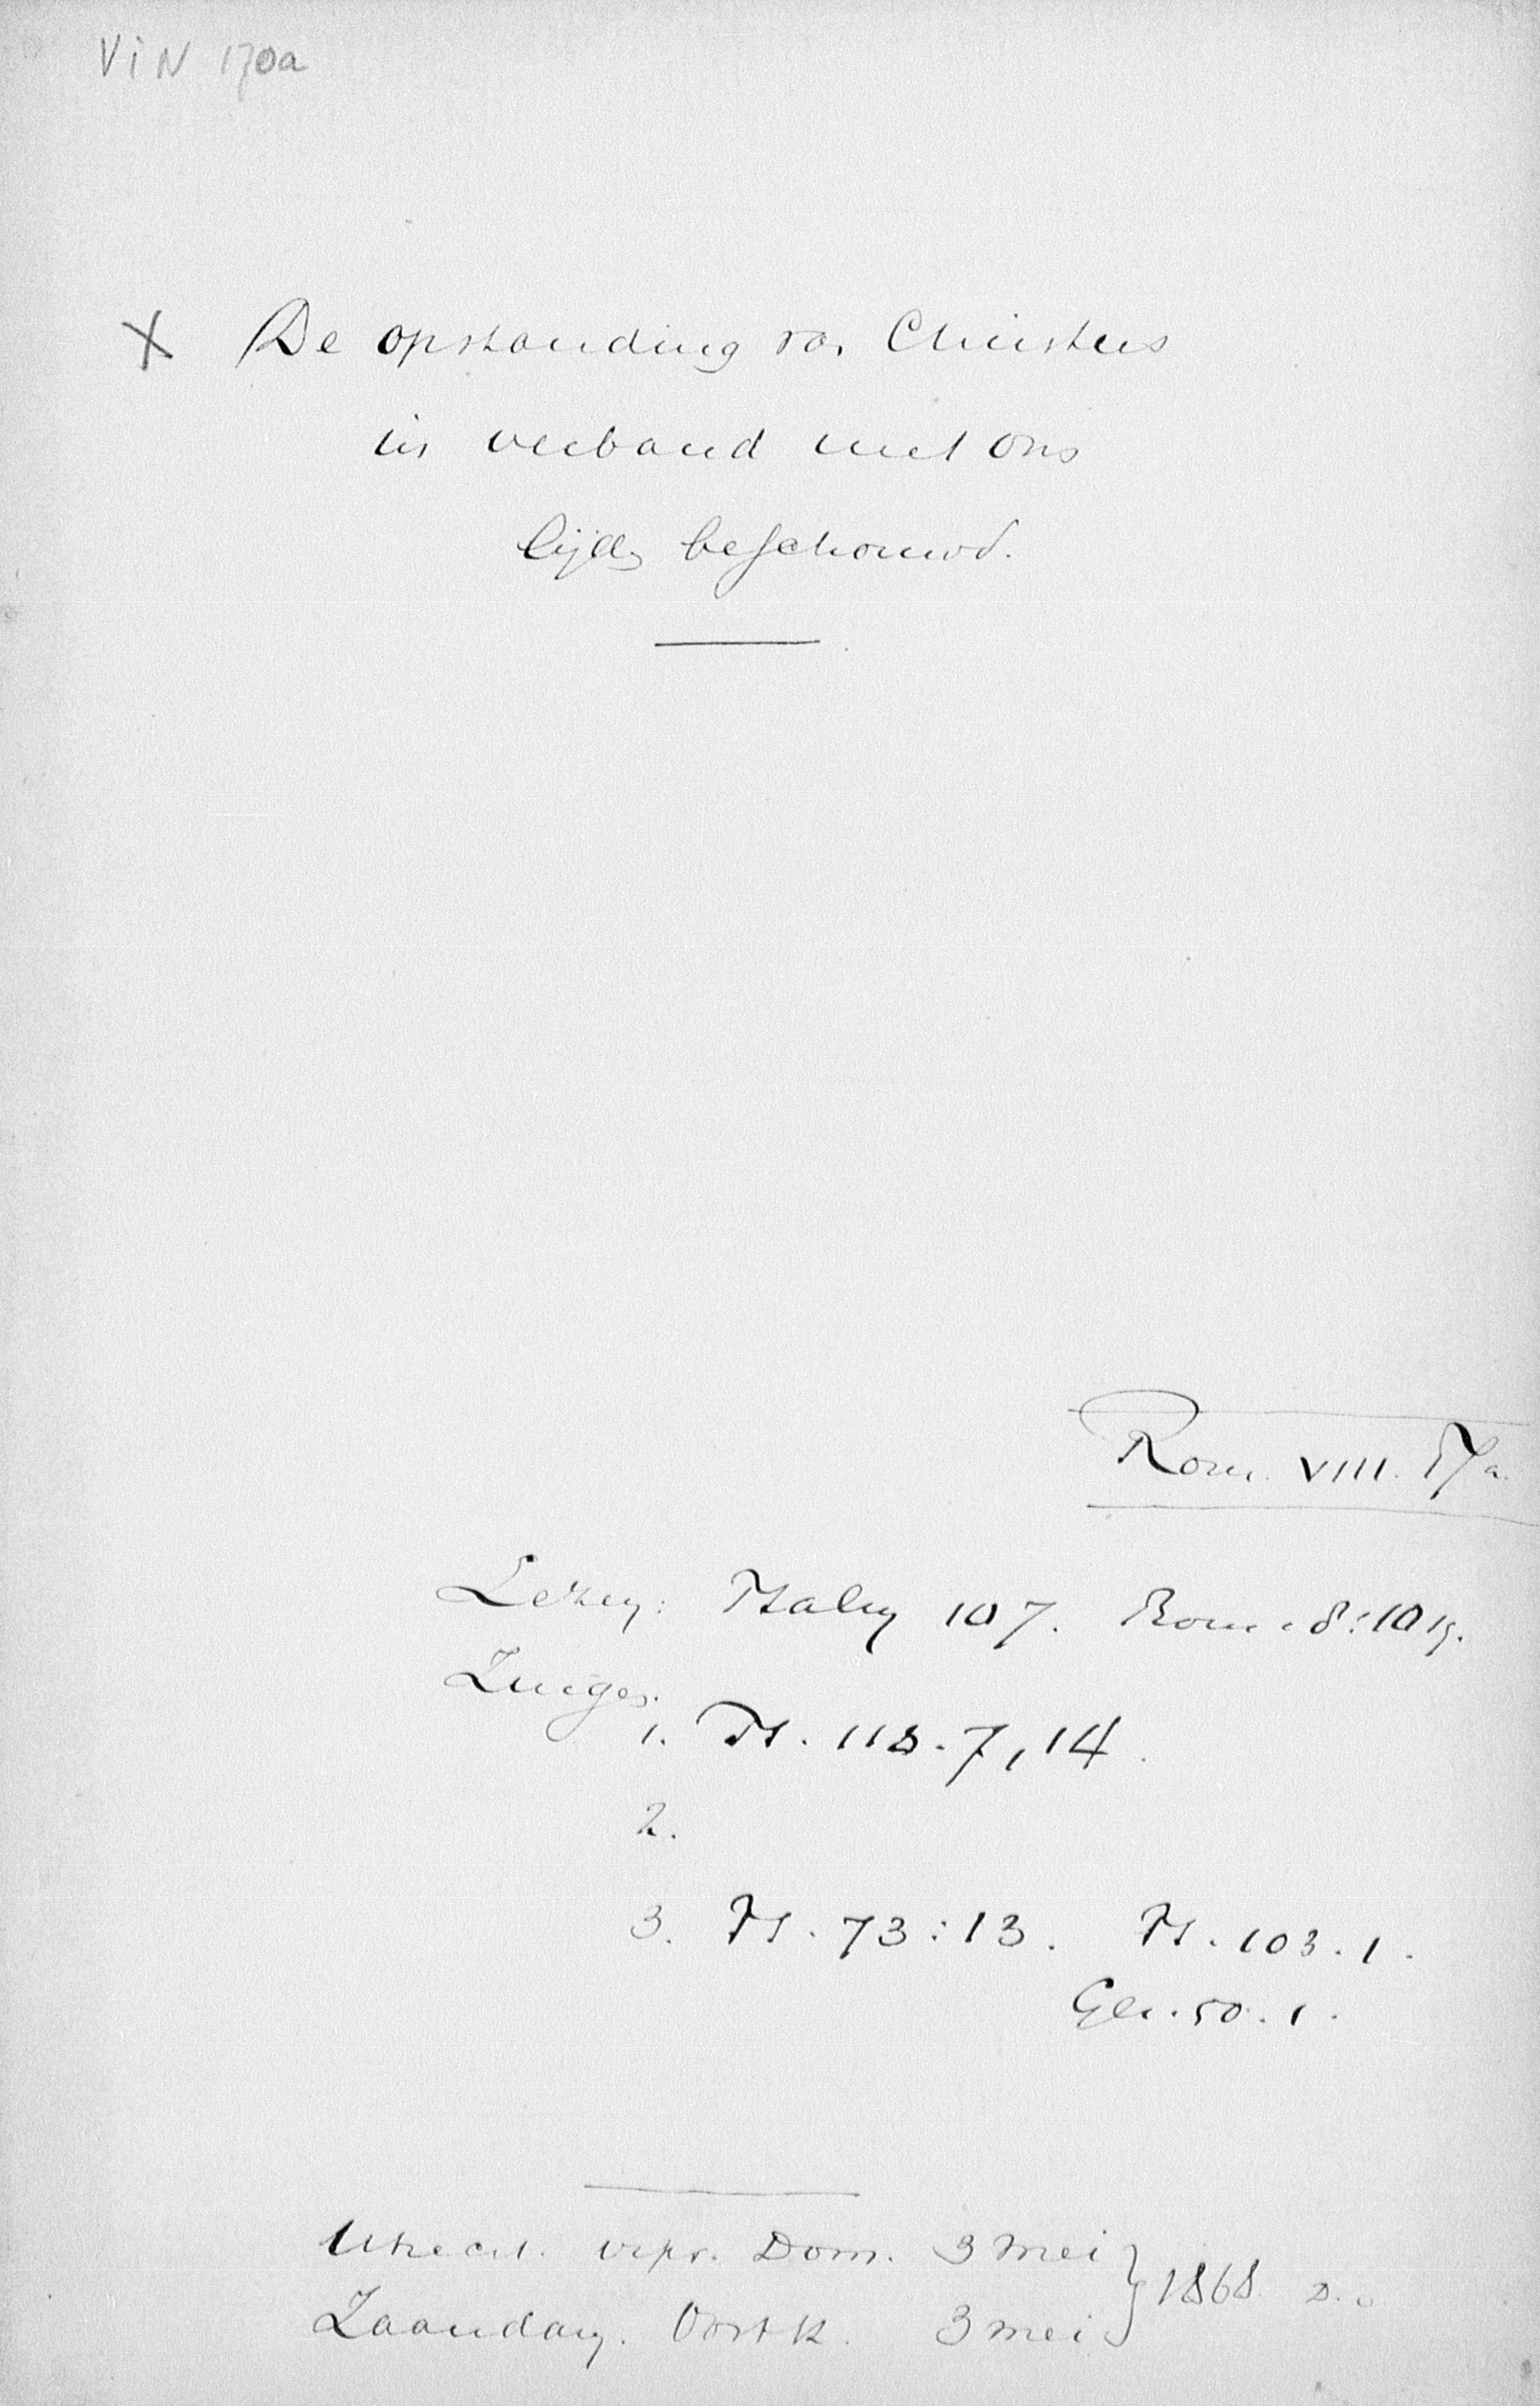 ViN 170a
X De opstanding van Christus
in verband met ons
lijden beschouwd.
Rom. VIII. 17a.
Lezen: Psalm 107. Rom. 8:10
Zingen.
1. Ps. 118.7,14.
2.
3. Ps. 73:13. Ps. 103.1.
Gez. 50.1.
Utrecht. Dom. 3 Mei
1868
Zaandam. Oostk. 3 mei